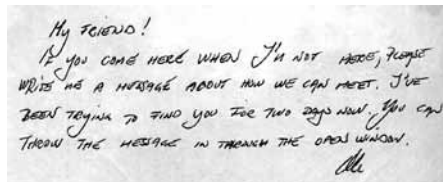 My FRIEND!
IF YOU COME HERE WHEN I'M NOT HERE, PLEASE
WRITE ME A MESSAGE ABOUT HOW WE CAN MEET. I'VE
BEEN TRYING TO FIND YOU FOR TWO DAYS NOW. YOU CAN
THROW THE MESSAGE IN THROUGH THE OPEN WINDOW.